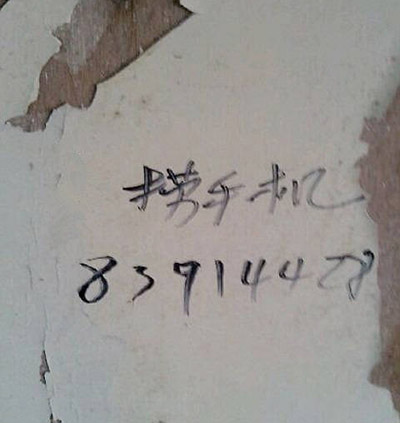 手机
83914428